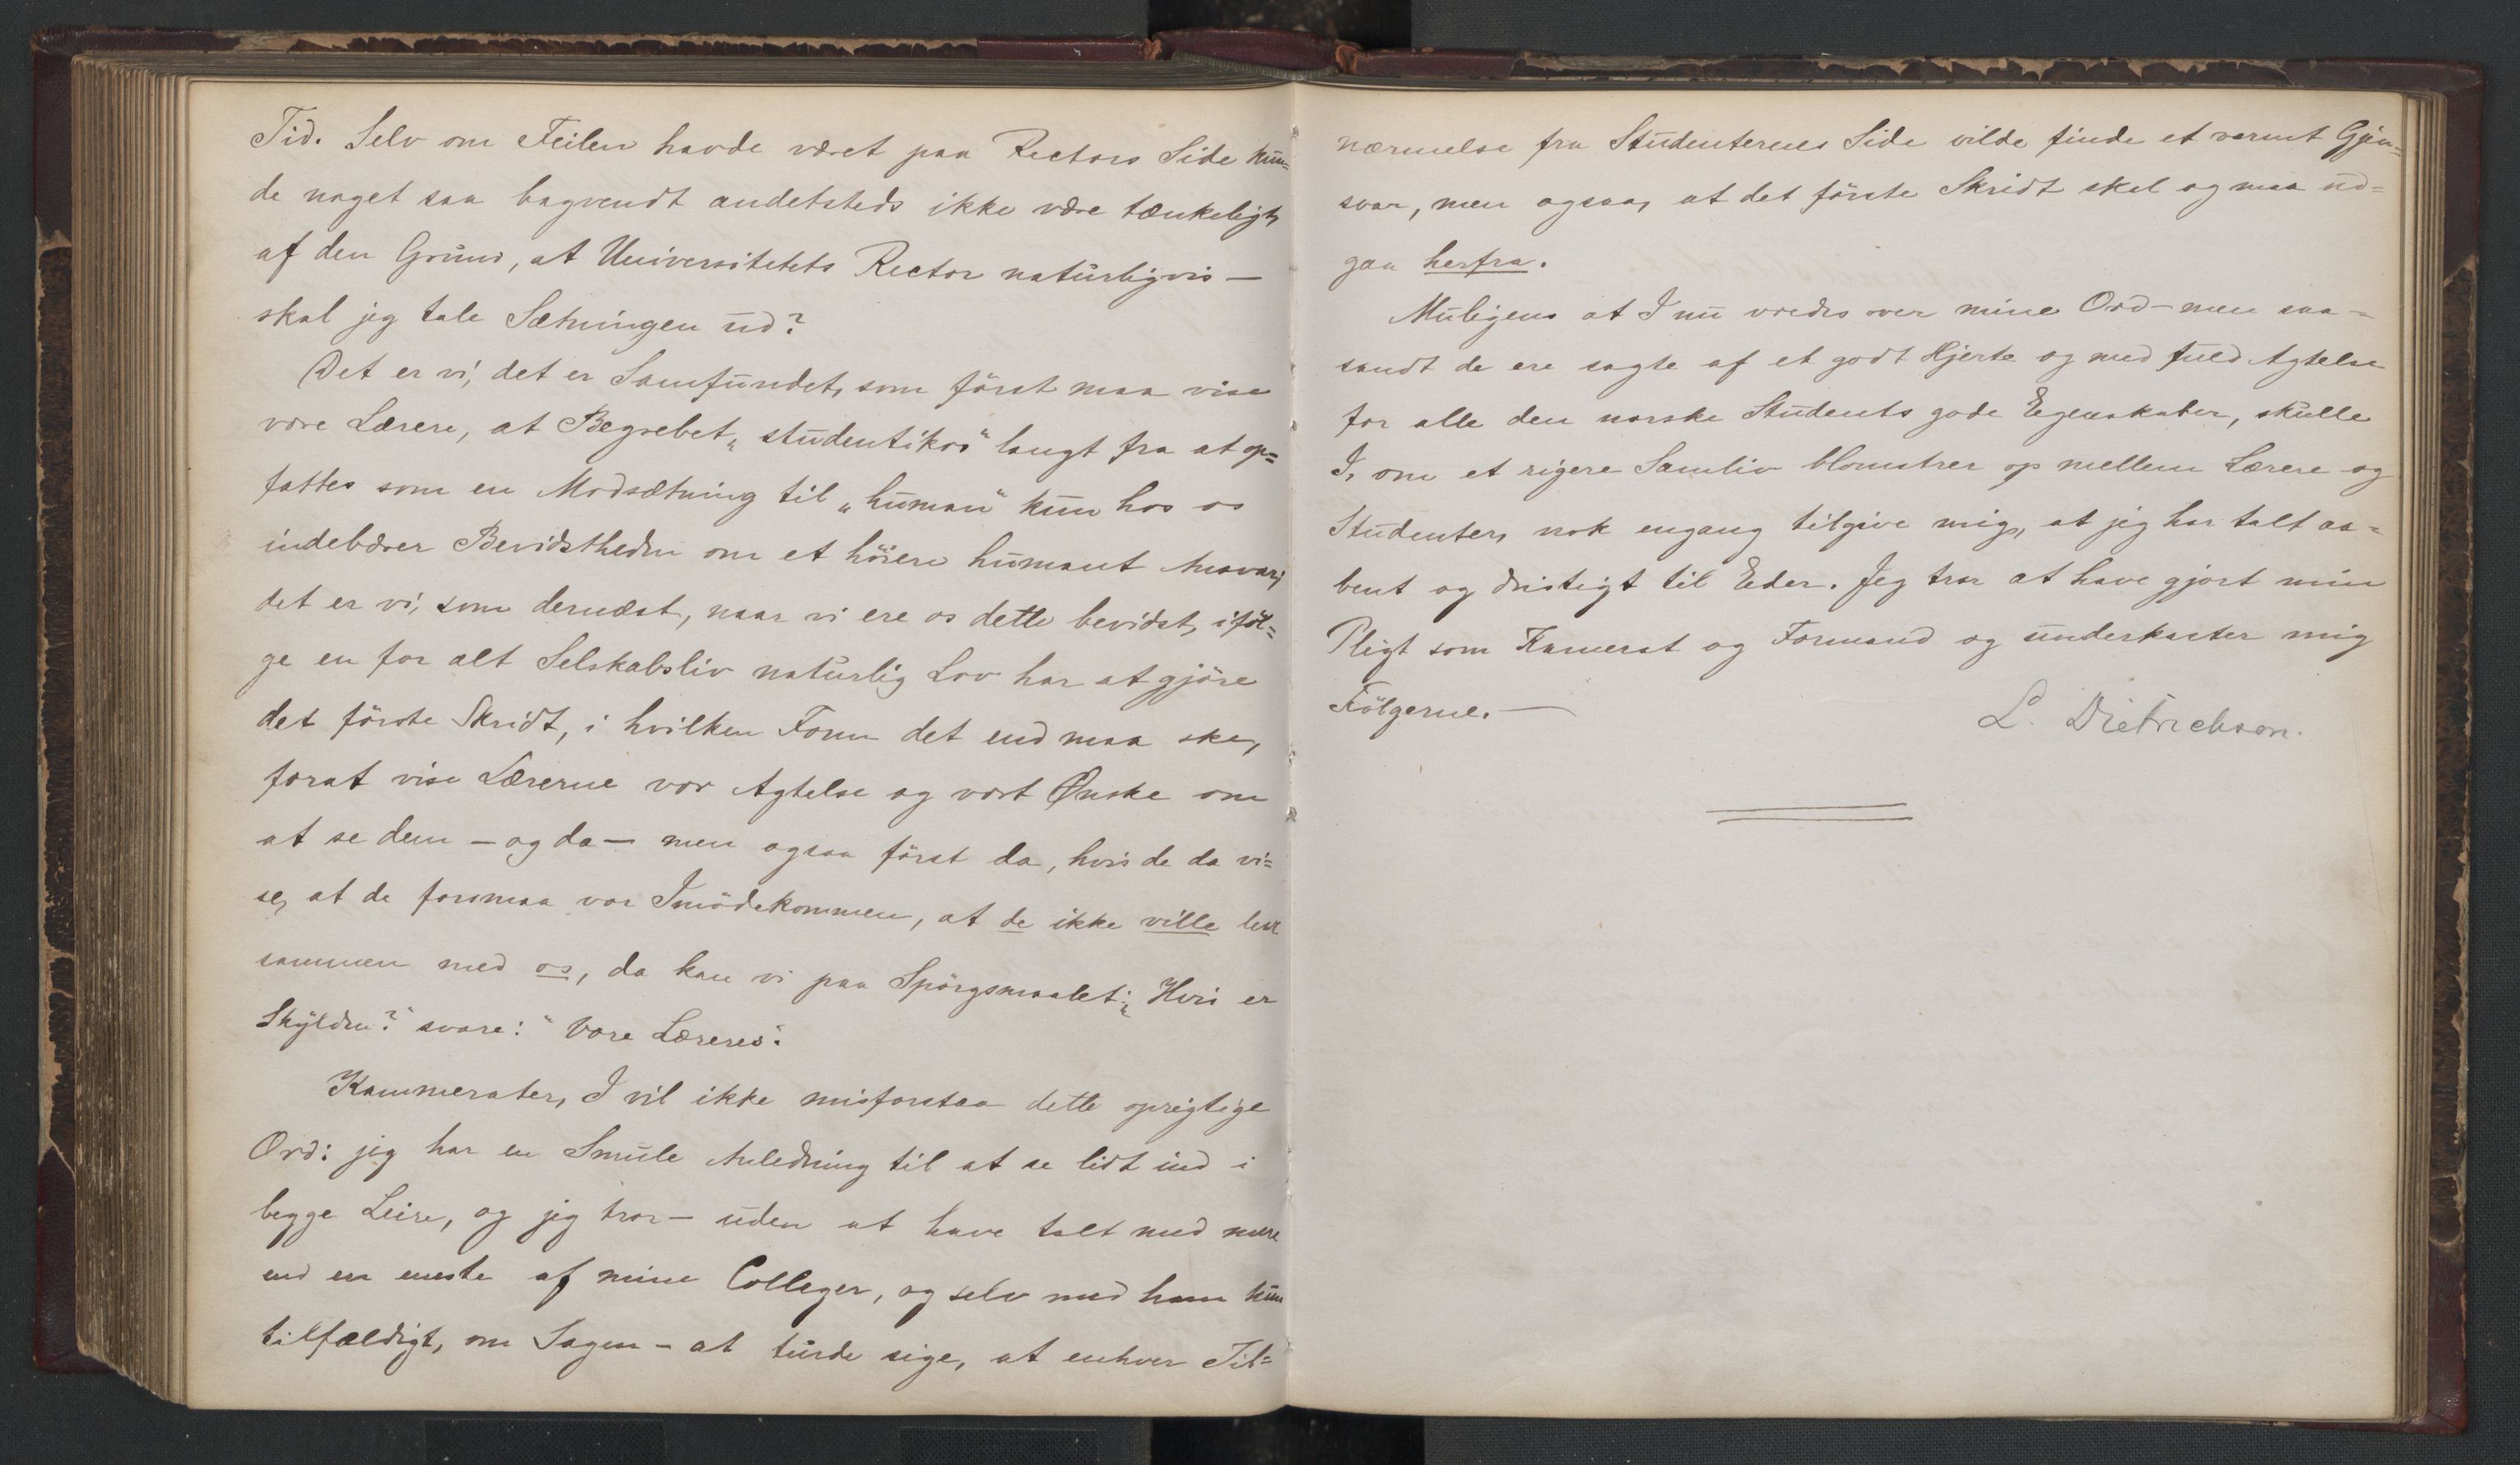 Tid. Selv om Feilen havde været paa Rectors Side kun=
de noget saa bagvendt andetsteds ikke være tænkeligt,
af den Grund, at Universitetets Rector naturligvis —
skal jeg tale Sætningen ud?
Det er vi, det er Samfundet, som först maa vise
vore Lærere, at Begrebet „studentikos“ langt fra at op=
fattes som en Modsætning til „human“ kun hos os
indebærer Bevidstheden om et höiere humant Ansvar;
det er vi, som dernæst, naar vi ere os dette bevidst, iföl=
ge en for alt Selskabsliv naturlig Lov har at gjöre
det förste Skridt, i hvilken Form det end maa ske,
forat vise Lærerne vor Agtelse og vort Ønske om
at se dem — og da — men ogsaa först da, hvis de da vi=
se, at de forsmaa vor Imödekommen, at de ikke ville leve
sammen med os, da kan vi paa Spörgsmaalet: „Hvis er
Skylden?“ svare: “Vore Læreres“.
Kammerater, I vil ikke misforstaa dette oprigtige
Ord: jeg har en Smule Anledning til at se lidt ind i
begge Leire, og jeg tror — uden at have talt med mere
end en eneste af mine Colleger, og selv med ham kun
tilfældigt, om Sagen — at turde sige, at enhver Til=
nærmelse fra Studenternes Side vilde finde et varmt Gjen=
svar, men ogsaa, at det förste Skridt skal og maa ud=
gaa herfra.
Muligens at I nu vredes over mine Ord — men saa=
sandt de ere sagte af et godt Hjerte og med fuld Agtelse
for alle den norske Students gode Egenskaber, skulle
I, om et rigere Samliv blomstrer op mellem Lærere og
Studenter, nok engang tilgive mig, at jeg har talt aa=
bent og dristigt til Eder. Jeg tror at have gjort min
Pligt som Kamerat og Formand og underkaster mig
Fölgerne. —
L. Dietrichson.